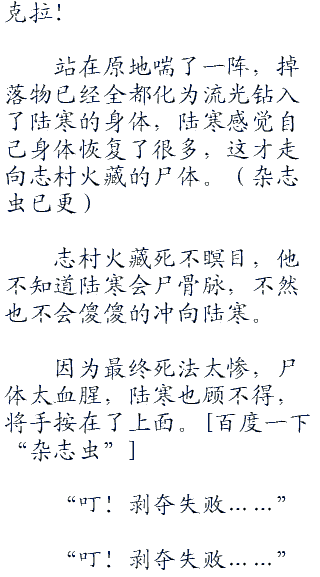 克拉！
站在原地喘了一阵，掉
落物已经全都化为流光钻入
了陆寒的身体，陆寒感觉自
己身体恢复了很多，这才走
向志村火藏的尸体。（杂志
虫已更）
志村火藏死不瞑目，他
不知道陆寒会尸骨脉，不然
也不会傻傻的冲向陆寒。
因为最终死法太惨，尸
体太血腥，陆寒也顾不得，
将手按在了上面。[百度一下
“杂志虫”]
“叮！剥夺失败……”
“叮！剥夺失败……”